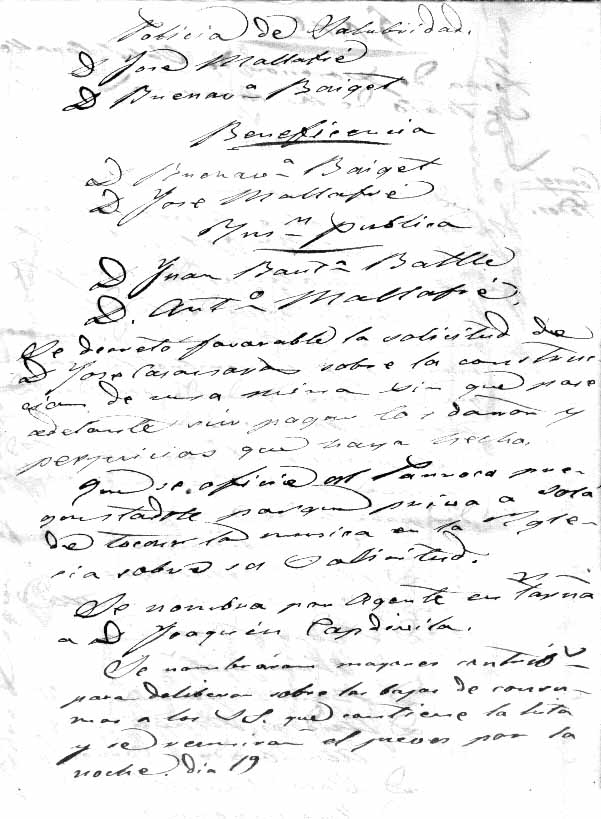 Policia de Salubridad.
D José Mallafré
D Buenavª Baiget
Beneficencia
D Buenavª Baiget
D. Jose Mallafré
Ynsⁿ publica
D Juan Bautª Batlle
D. Antº Mallafré.
Se decretó favorable la solicitud de
D Jose Casasada sobre la construc
cion de una mina sin que pase
adelante sin pagar los daños y
perjuicios que haya hecho.
Que se oficie al Parroco pre-
guntadole porque priva a
de tocar la musica en la Ygle-
sia sobre su solicitud.
Se nombra por Agente en Tarñª
a D Joaquin Capdevila.
Se nombraron mayores contribˢ
para deliberar sobre las bajas de consu-
mos a los SS. que contiene la lista
y se reuniran el jueves por la
noche dia 19